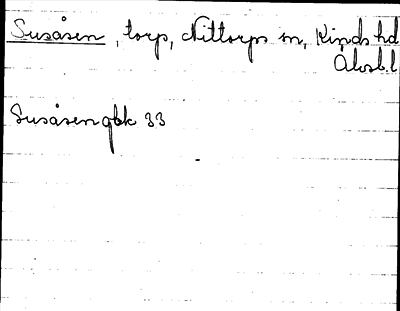 Susåsen, torp, Nittorps sn, Kinds hd
Älvsb.l
Susåsen gbk 33